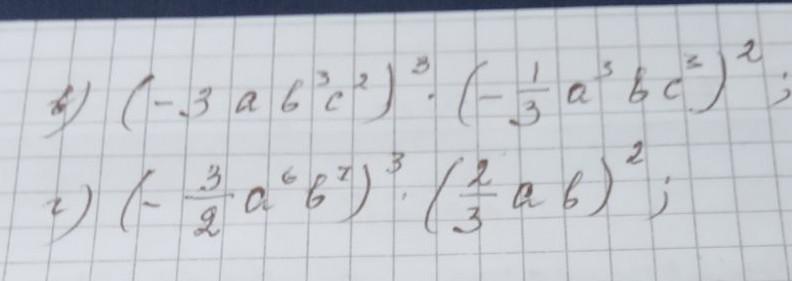 в) (-3ab³c²)³ · (-1/3 a³bc³)²;
г) (-3/2 a⁶b⁷)³ · (2/3 ab)²;